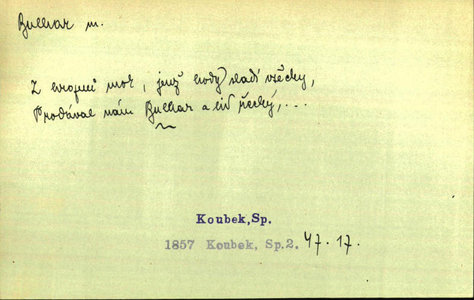 Bulhar m.
Z krajní moř, jenž hody sladí všecky,
Prodával nám Bulhar a lid řecký,...
Koubek,Sp.
1857 Koubek, Sp.2. 47.17.